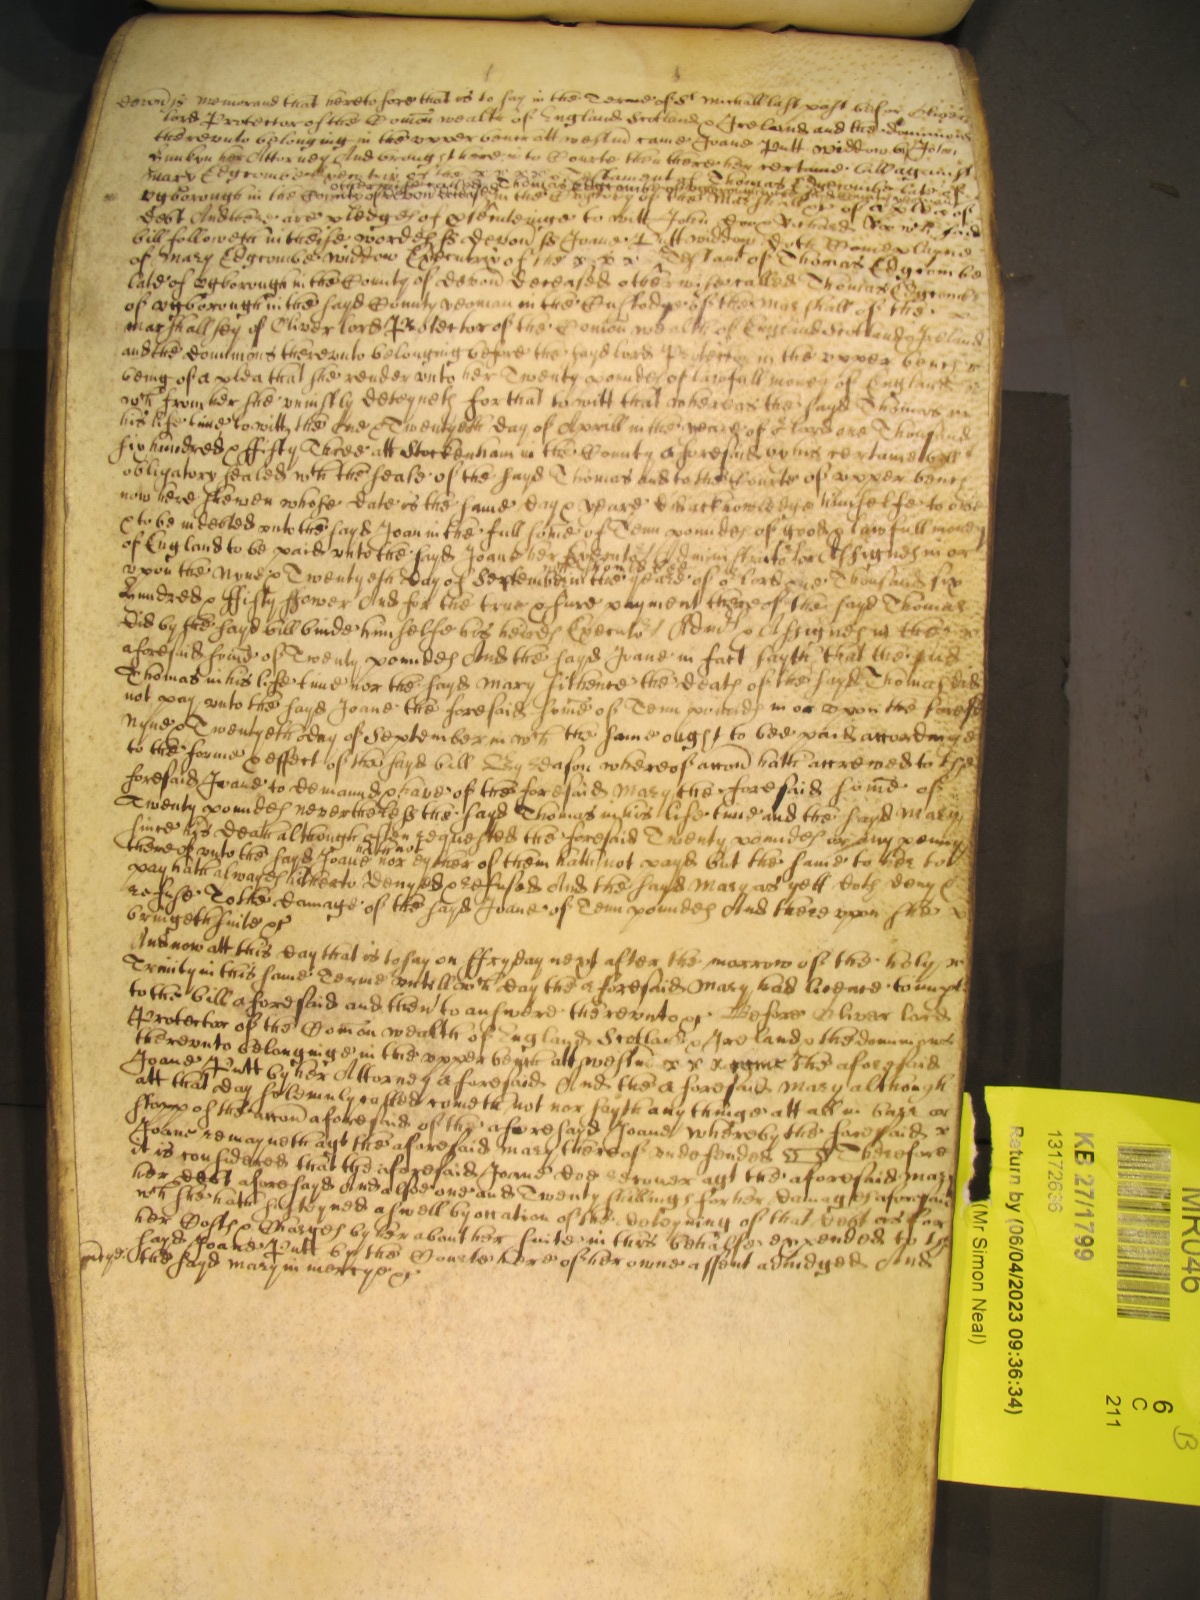 Devon ss Memorand that heretofore that is to say in the Terme of St Michall last past before Oliver
lord Protector of the Comon wealth of England Scotland & Ireland and the dominions
therevnto belonging in the vpper bench att westm came Joane Putt widdow by John
her Attorney And brought here into Courte then there her certaine bill against
Mary Edgcombe Executrix of the x x x x Testament of Thomas Edgcombe late of
Vgborough in the County of Devon deceased otherwise called Thomas Edgcombe of Vgborough in the in the Custody of the Marshall &c of a plea of
debt And there are pledges of prosecutinge to witt John Doe & Richard Roe wch said
bill followeth in theise wordes ss Devon ss Joane Putt widdow doth Complayne
of Mary Edgcombe widdow Executrix of the x x x Testamt of Thomas Edgcombe
late of Vgborough in the County of Devon deceased otherwise called Thomas Edgcombe
of Vgborough in the sayd County yeoman in the Custodye of the Marshall of the
Marshallsey of Oliver lord Protector of the Comon wealth of England Scotland & Ireland
and the dominions therevnto belonging before the sayd lord Protector in the vpper bench
being of a plea that she render vnto her Twenty poundes of lawfull money of England
wch from her she vniustly deteyneth for that to witt that whereas the sayd Thomas in
his life time to witt the One & Twentyeth day of Aprill in the yeare of or lord one Thousand
six hundred & ffifty Three att Stockenham in the County aforesaid by his certaine bill
obligatory sealed wth the seale of the sayd Thomas and to the Courte of vpper bench
now here shewen whose date is the same day & yeare did acknowledge himselfe to owe
& to be indebted vnto the sayd Joan in the full some of Tenn poundes of good & lawfull money
of England to be paid vnto the sayd Joane her Executors Administrators or Assignes in or
vpon the Nyne & Twentyeth day of September in the yeare of or lord one Thousand six
hundred & ffifty ffower And for the true & sure payment thereof the sayd Thomas
did by the sayd bill binde himselfe his heires Executors Admrs & Assignes in the
aforesaid some of Twenty poundes And the sayd Joane in fact sayth that the said
Thomas in his life time nor the sayd Mary sithence the death of the sayd Thomas did
not pay vnto the sayd Joane the foresaid some of Tenn poundes in or vpon the foresd
Nyne & Twentyeth day of September in wch the same ought to bee paid accordinge
to the forme & effect of the sayd bill By reason whereof accon hath accrewed to the
foresaid Joane to demaund & have of the foresaid Mary the foresaid some of
Twenty poundes neverthelesse the sayd Thomas in his life time and the sayd Mary
since his death although often requested the foresaid Twenty poundes or any penny
thereof vnto the sayd Joane hath not nor eyther of them hath not payd but the same to her to
pay hath alwayes hitherto denyed & refused And the sayd Mary as yett doth deny &
refuse To the damage of the sayd Joane of Tenn poundes And there vpon she
bringeth suite &c
And now att this day that is to say on ffryday next after the morrow of the holy
Trinity in this same Terme vntill wch day the aforesaid Mary had licence to imparle
to the bill aforesaid and then to answere therevnto &c Before Oliver lord
Protector of the Comon wealth of England Scotland & Ireland & the dominions
therevnto belonginge in the vpper bench att westm x x x came the aforesaid
Joane Putt by her Attorney aforesaid And the aforesaid Mary although
att that day solemnly called cometh not nor sayth any thinge att all in barr or
stopp of the accon aforesaid of the aforesayd Joane whereby the foresaid
Joane remayneth agt the aforesaid Mary thereof vndefended Therefore
it is considered that the aforesaid Joane doe recover agt the aforesaid Mary
her debt aforesayd And alsoe one and Twenty shillings for her damages aforesaid
wch she hath susteyned aswell by occasion of the deteyning of that debt as for
her Costs & Charges by her about her suite in this behalfe expended to the
sayd Joane Putt by the Courte here of her owne assent adiudged And
the sayd Mary in mercye &c
mercye
MIR046
6
C
211
B
KB 27/1799
13172636
Return by (06/04/2023 09:36:34)
(Mr Simon Neal)